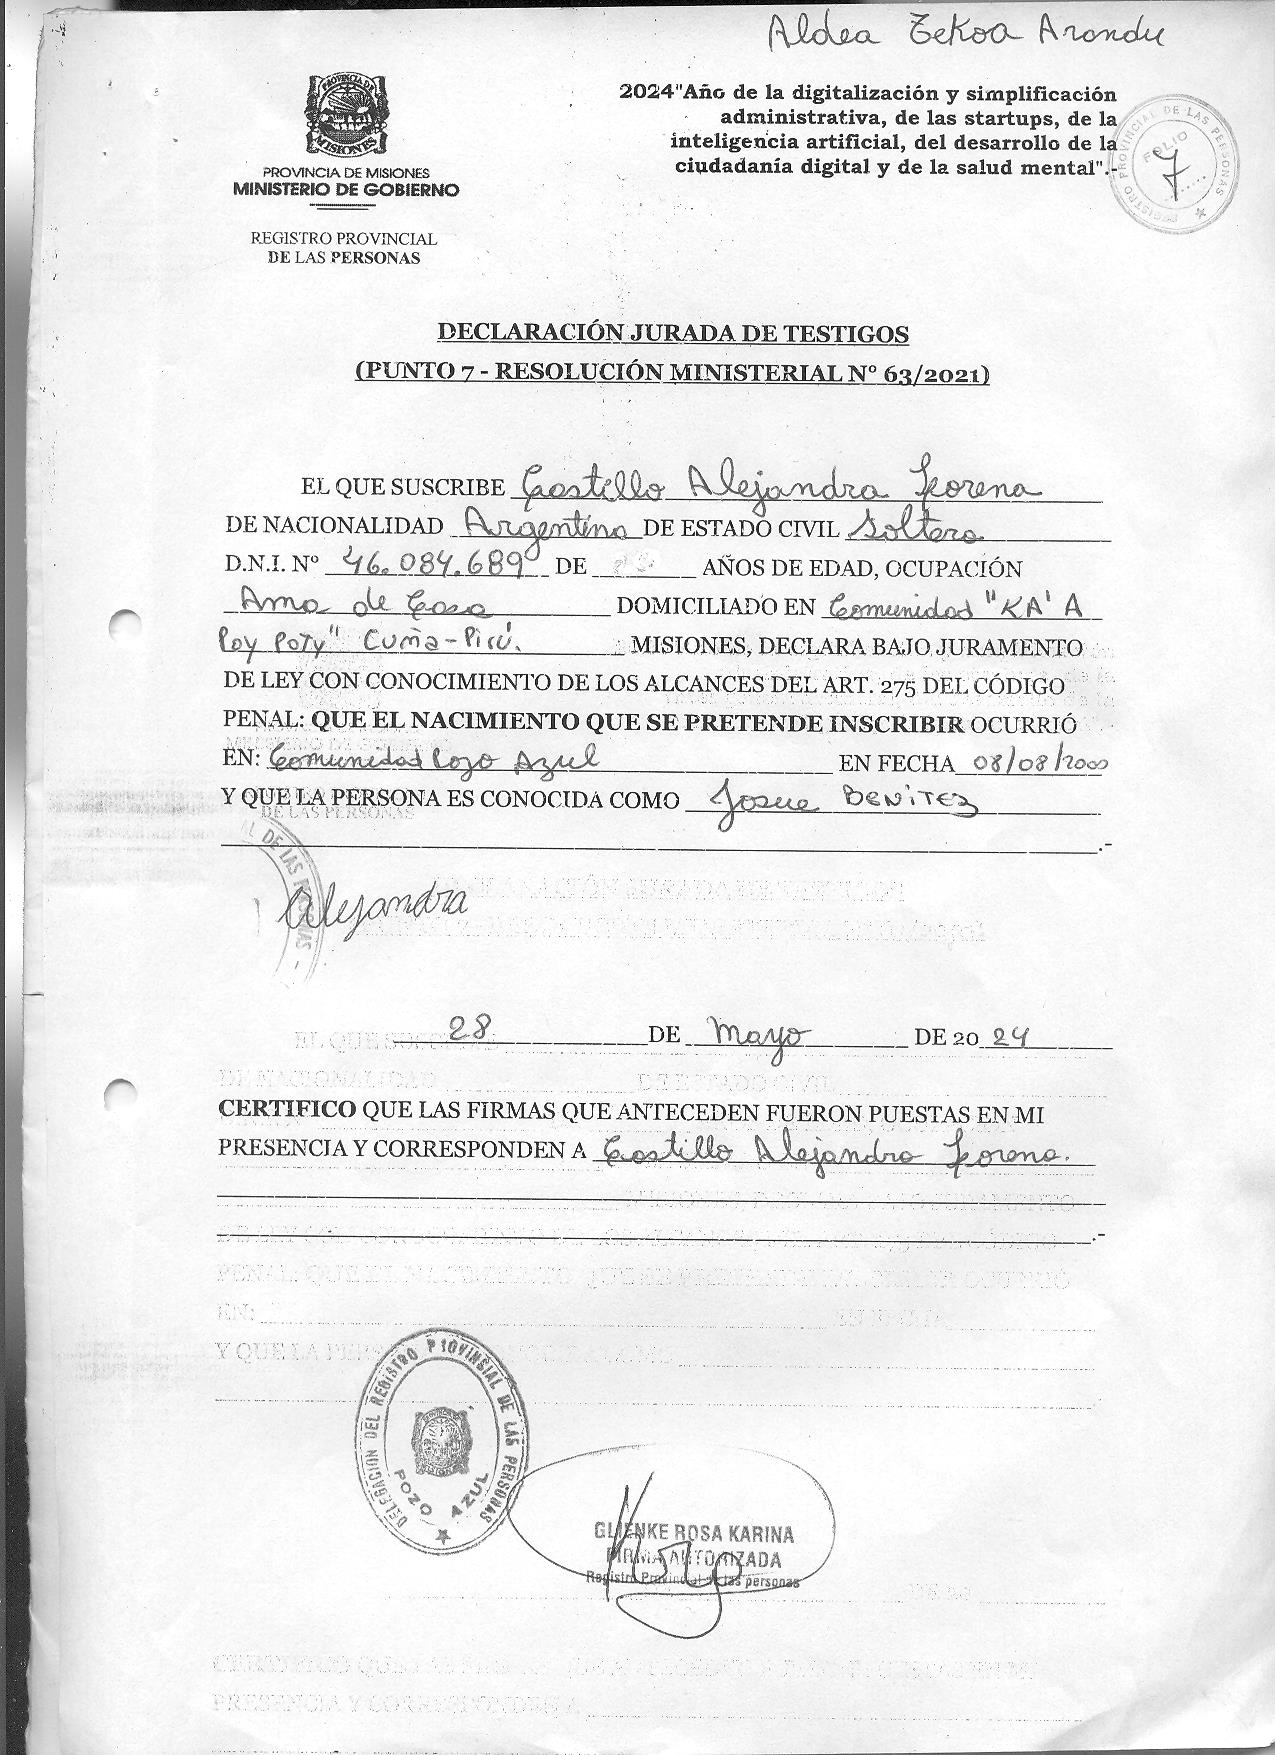 Aldea Tekoa Arandu
2024"Año de la digitalización y simplificación
administrativa, de las startups, de la
inteligencia artificial, del desarrollo de la
ciudadanía digital y de la salud mental".-
REGISTRO PROVINCIAL DE LAS PERSONAS
FOLIO
7
PROVINCIA DE MISIONES
PROVINCIA DE MISIONES
MINISTERIO DE GOBIERNO
REGISTRO PROVINCIAL
DE LAS PERSONAS
DECLARACIÓN JURADA DE TESTIGOS
(PUNTO 7 - RESOLUCIÓN MINISTERIAL Nº 63/2021)
EL QUE SUSCRIBE Castillo Alejandra Lorena
DE NACIONALIDAD Argentina DE ESTADO CIVIL Soltera
D.N.I. Nº 46.084.689 DE AÑOS DE EDAD, OCUPACIÓN
Ama de Casa DOMICILIADO EN Comunidad "KA'A
Poy Poty" Cuña-Pirú. MISIONES, DECLARA BAJO JURAMENTO
DE LEY CON CONOCIMIENTO DE LOS ALCANCES DEL ART. 275 DEL CÓDIGO
PENAL: QUE EL NACIMIENTO QUE SE PRETENDE INSCRIBIR OCURRIÓ
EN: Comunidad Pozo Azul EN FECHA 08/08/2000
Y QUE LA PERSONA ES CONOCIDA COMO Josue BENITEZ
.-
AL DE LAS PERSONAS -
Alejandra
28 DE Mayo DE 2024
CERTIFICO QUE LAS FIRMAS QUE ANTECEDEN FUERON PUESTAS EN MI
PRESENCIA Y CORRESPONDEN A Castillo Alejandra Lorena.
.-
DELEGACION DEL REGISTRO PROVINCIAL DE LAS PERSONAS
POZO AZUL
GLIENKE ROSA KARINA
FIRMA AUTORIZADA
Registro Provincial de las personas